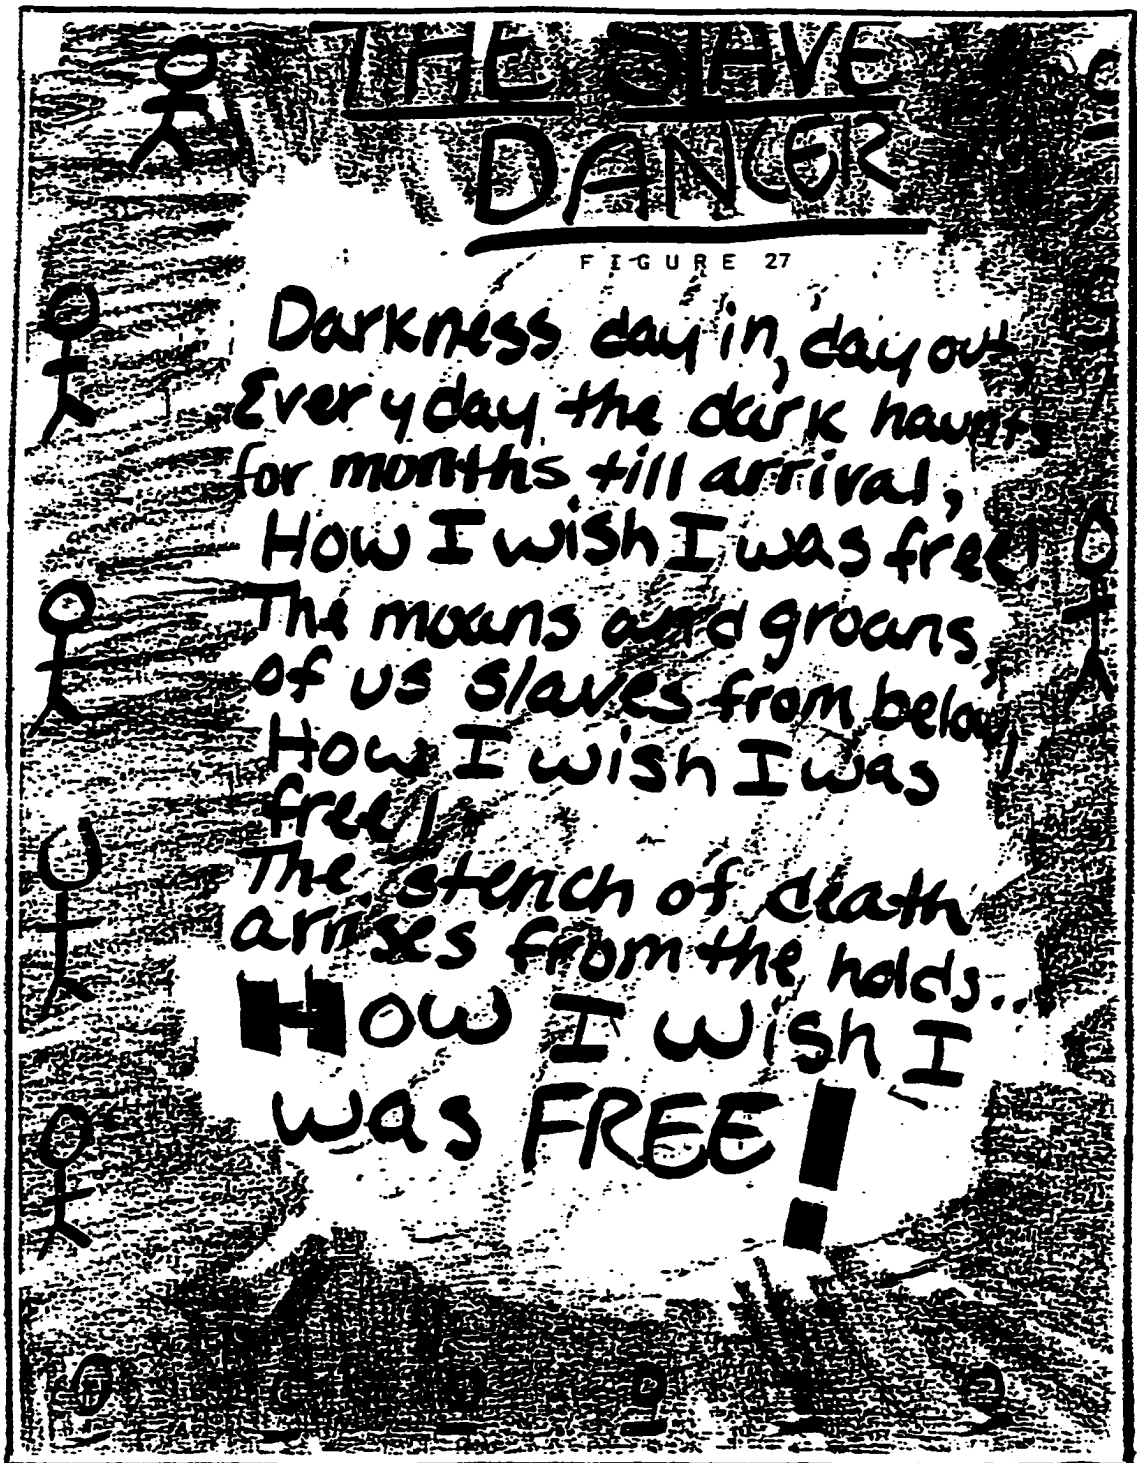 THE SLAVE
DANCER
FIGURE 27
Darkness day in, day out,
Everyday the dark haunts
for months till arrival,
How I wish I was free!
The moans and groans,
of us slaves from below,
How I wish I was
free!
The stench of death
arrises from the holds...
How I wish I
was FREE!